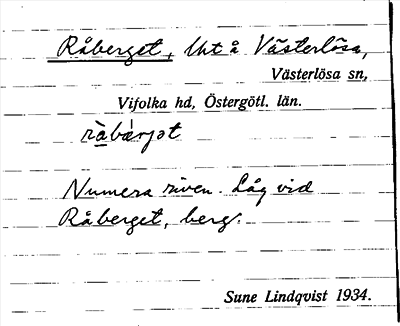 Råberget, lht å Västerlösa,
Västerlösa sn,
Vifolka hd, Östergötl. län.
råbærjət
Numera riven. Låg vid
Råberget, berg.
Sune Lindqvist 1934.